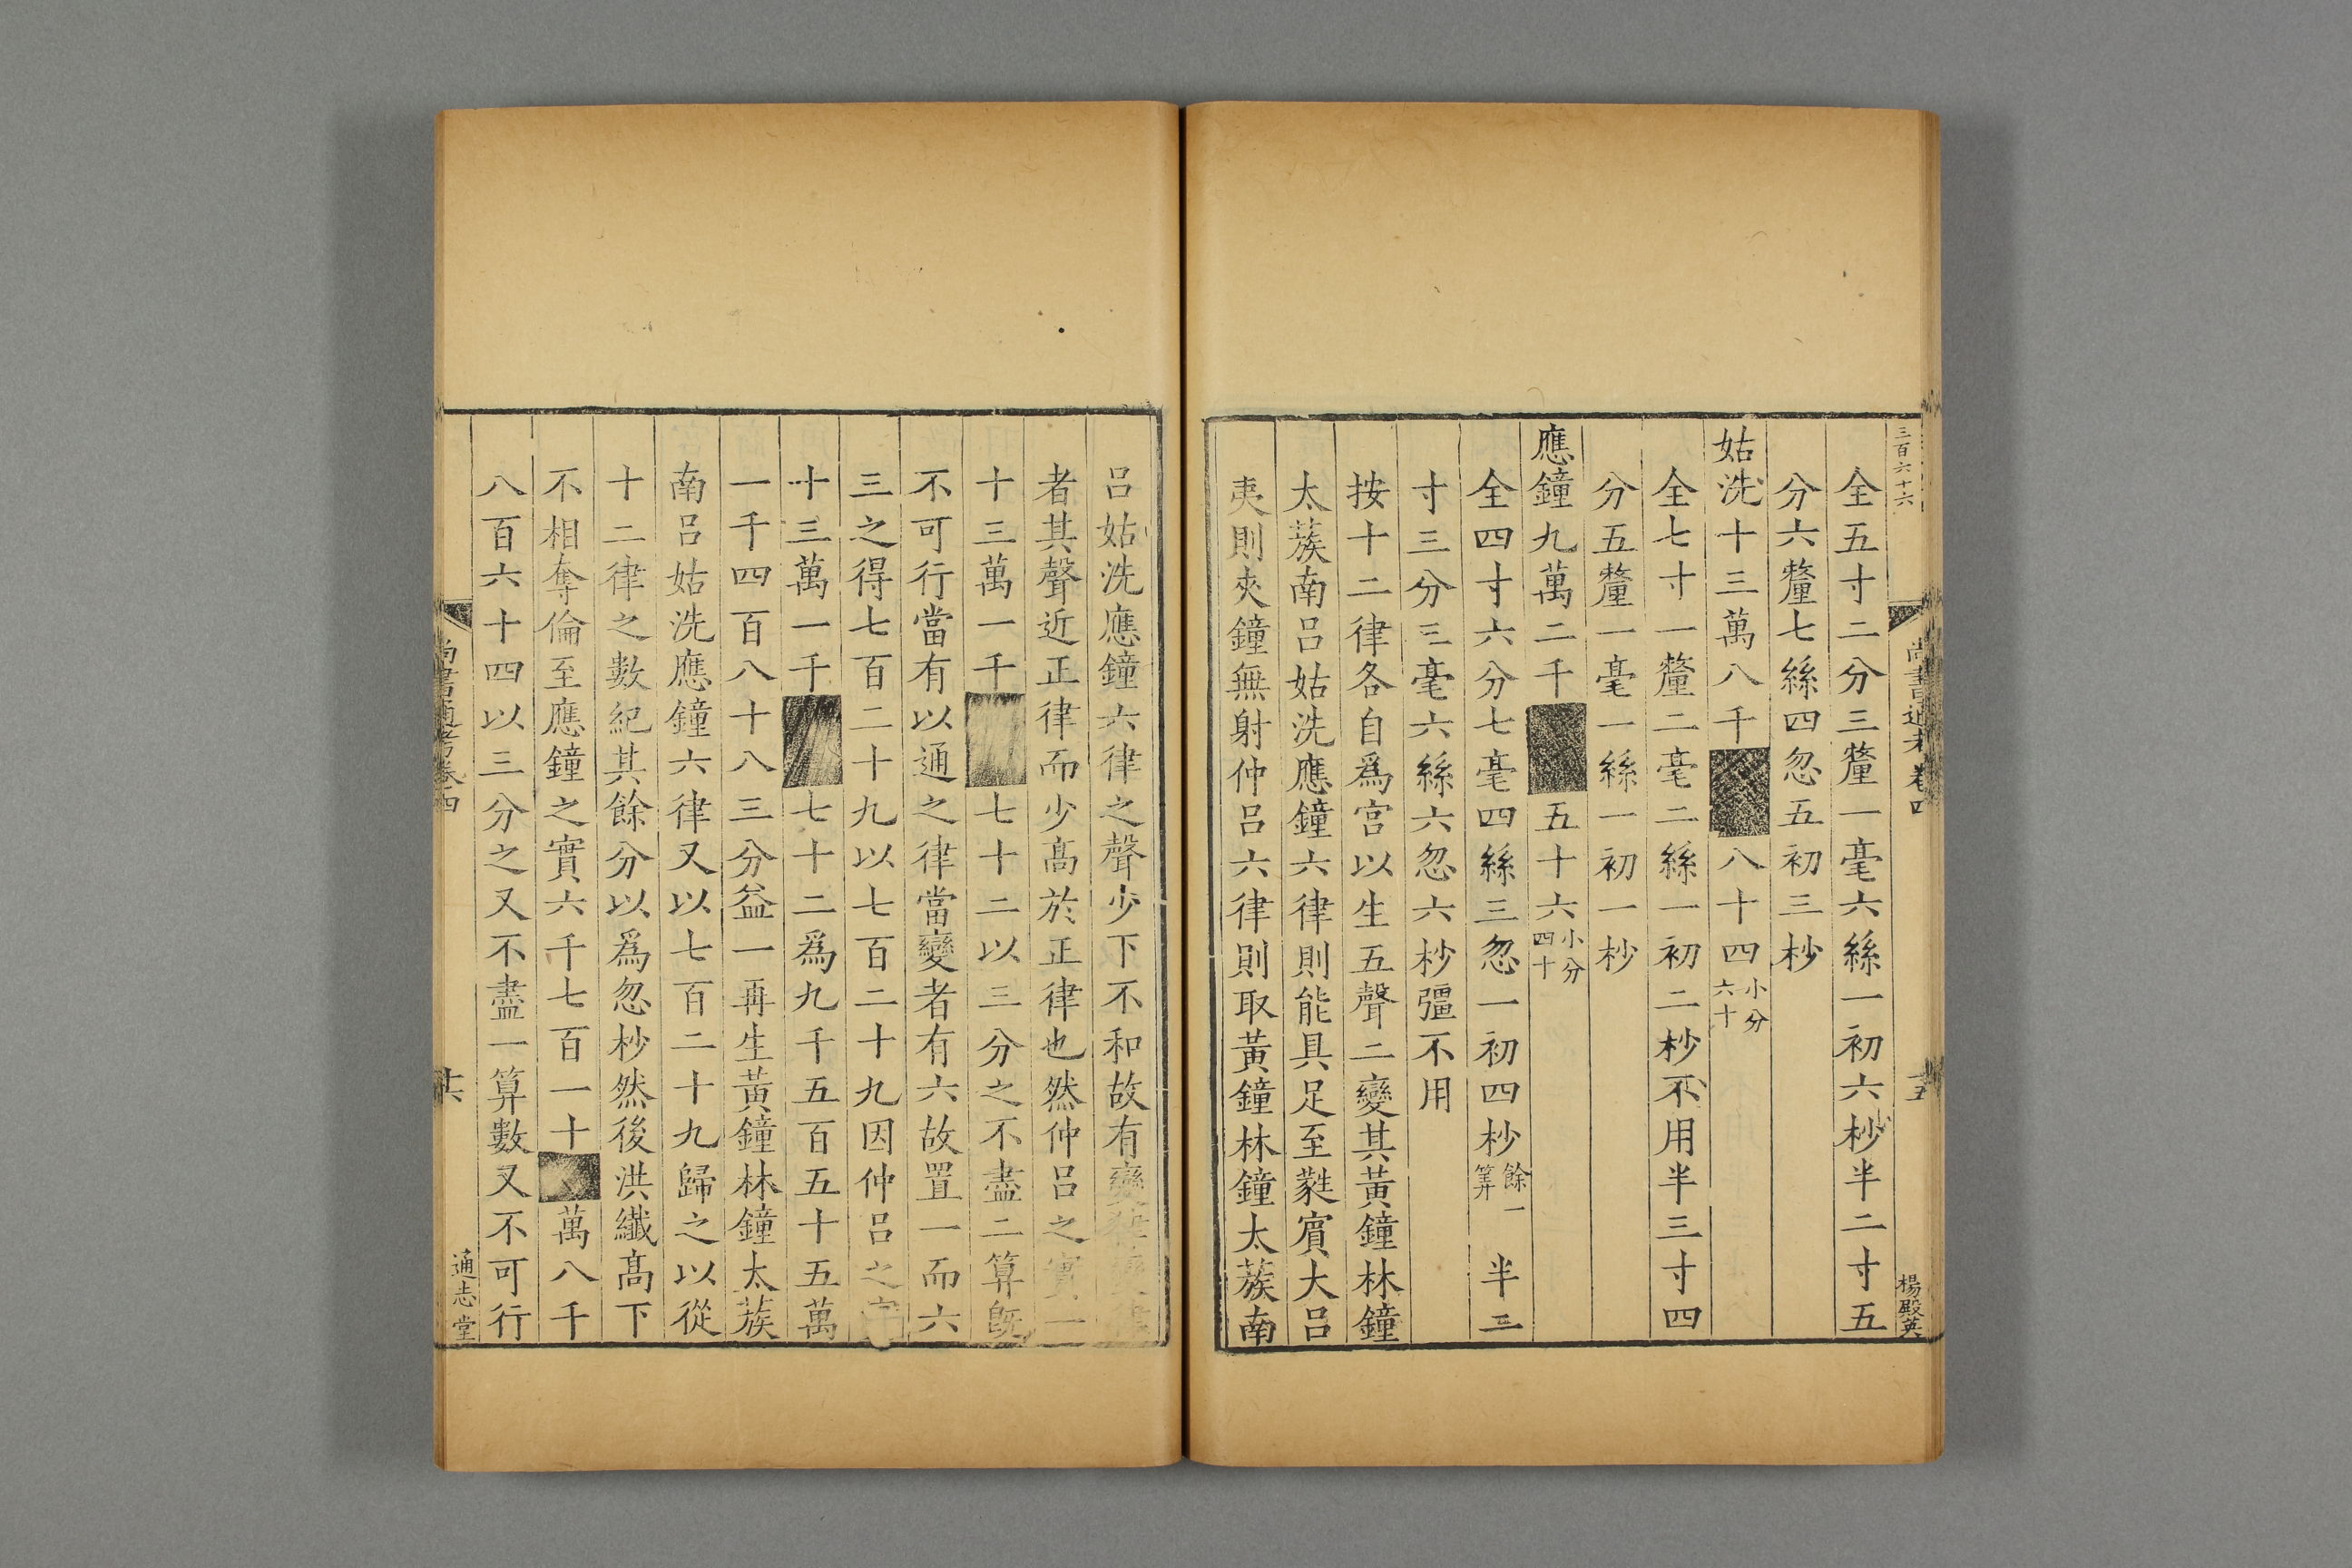 三百六十六
尚書通考卷四
十五
楊殿英
全五寸二分三釐一毫六絲一初六杪半二寸五
分六釐七絲四忽五初三杪
姑洗十三萬八千■■八十四小分六十
全七寸一釐二毫二絲一初二杪不用半三寸四
分五釐一毫一絲一初一杪
應鐘九萬二千■■五十六小分四十
全四寸六分七毫四絲三忽一初四杪餘一筭半三
寸三分三毫六絲六忽六杪彊不用
按十二律各自爲宮以生五聲二變其黃鐘林鐘
太蔟南呂姑洗應鐘六律則能具足至蕤賓大呂
夷則夾鐘無射仲呂六律則取黃鐘林鐘太蔟南
呂姑洗應鐘六律之聲少下不和故有變
者其聲近正律而少高於正律也然仲呂之實一
十三萬一千■■七十二以三分之不盡二算既
不可行當有以通之律當變者有六故置一而六
三之得七百二十九以七百二十九因仲呂之
十三萬一千■■七十二爲九千五百五十五萬
一千四百八十八三分益一再生黃鐘林鐘太蔟
南呂姑洗應鐘六律又以七百二十九歸之以從
十二律之數紀其餘分以爲忽杪然後洪纖高下
不相奪倫至應鐘之實六千七百一十■萬八千
八百六十四以三分之又不盡一算數又不可行
尚書通考卷四
十六
通志堂